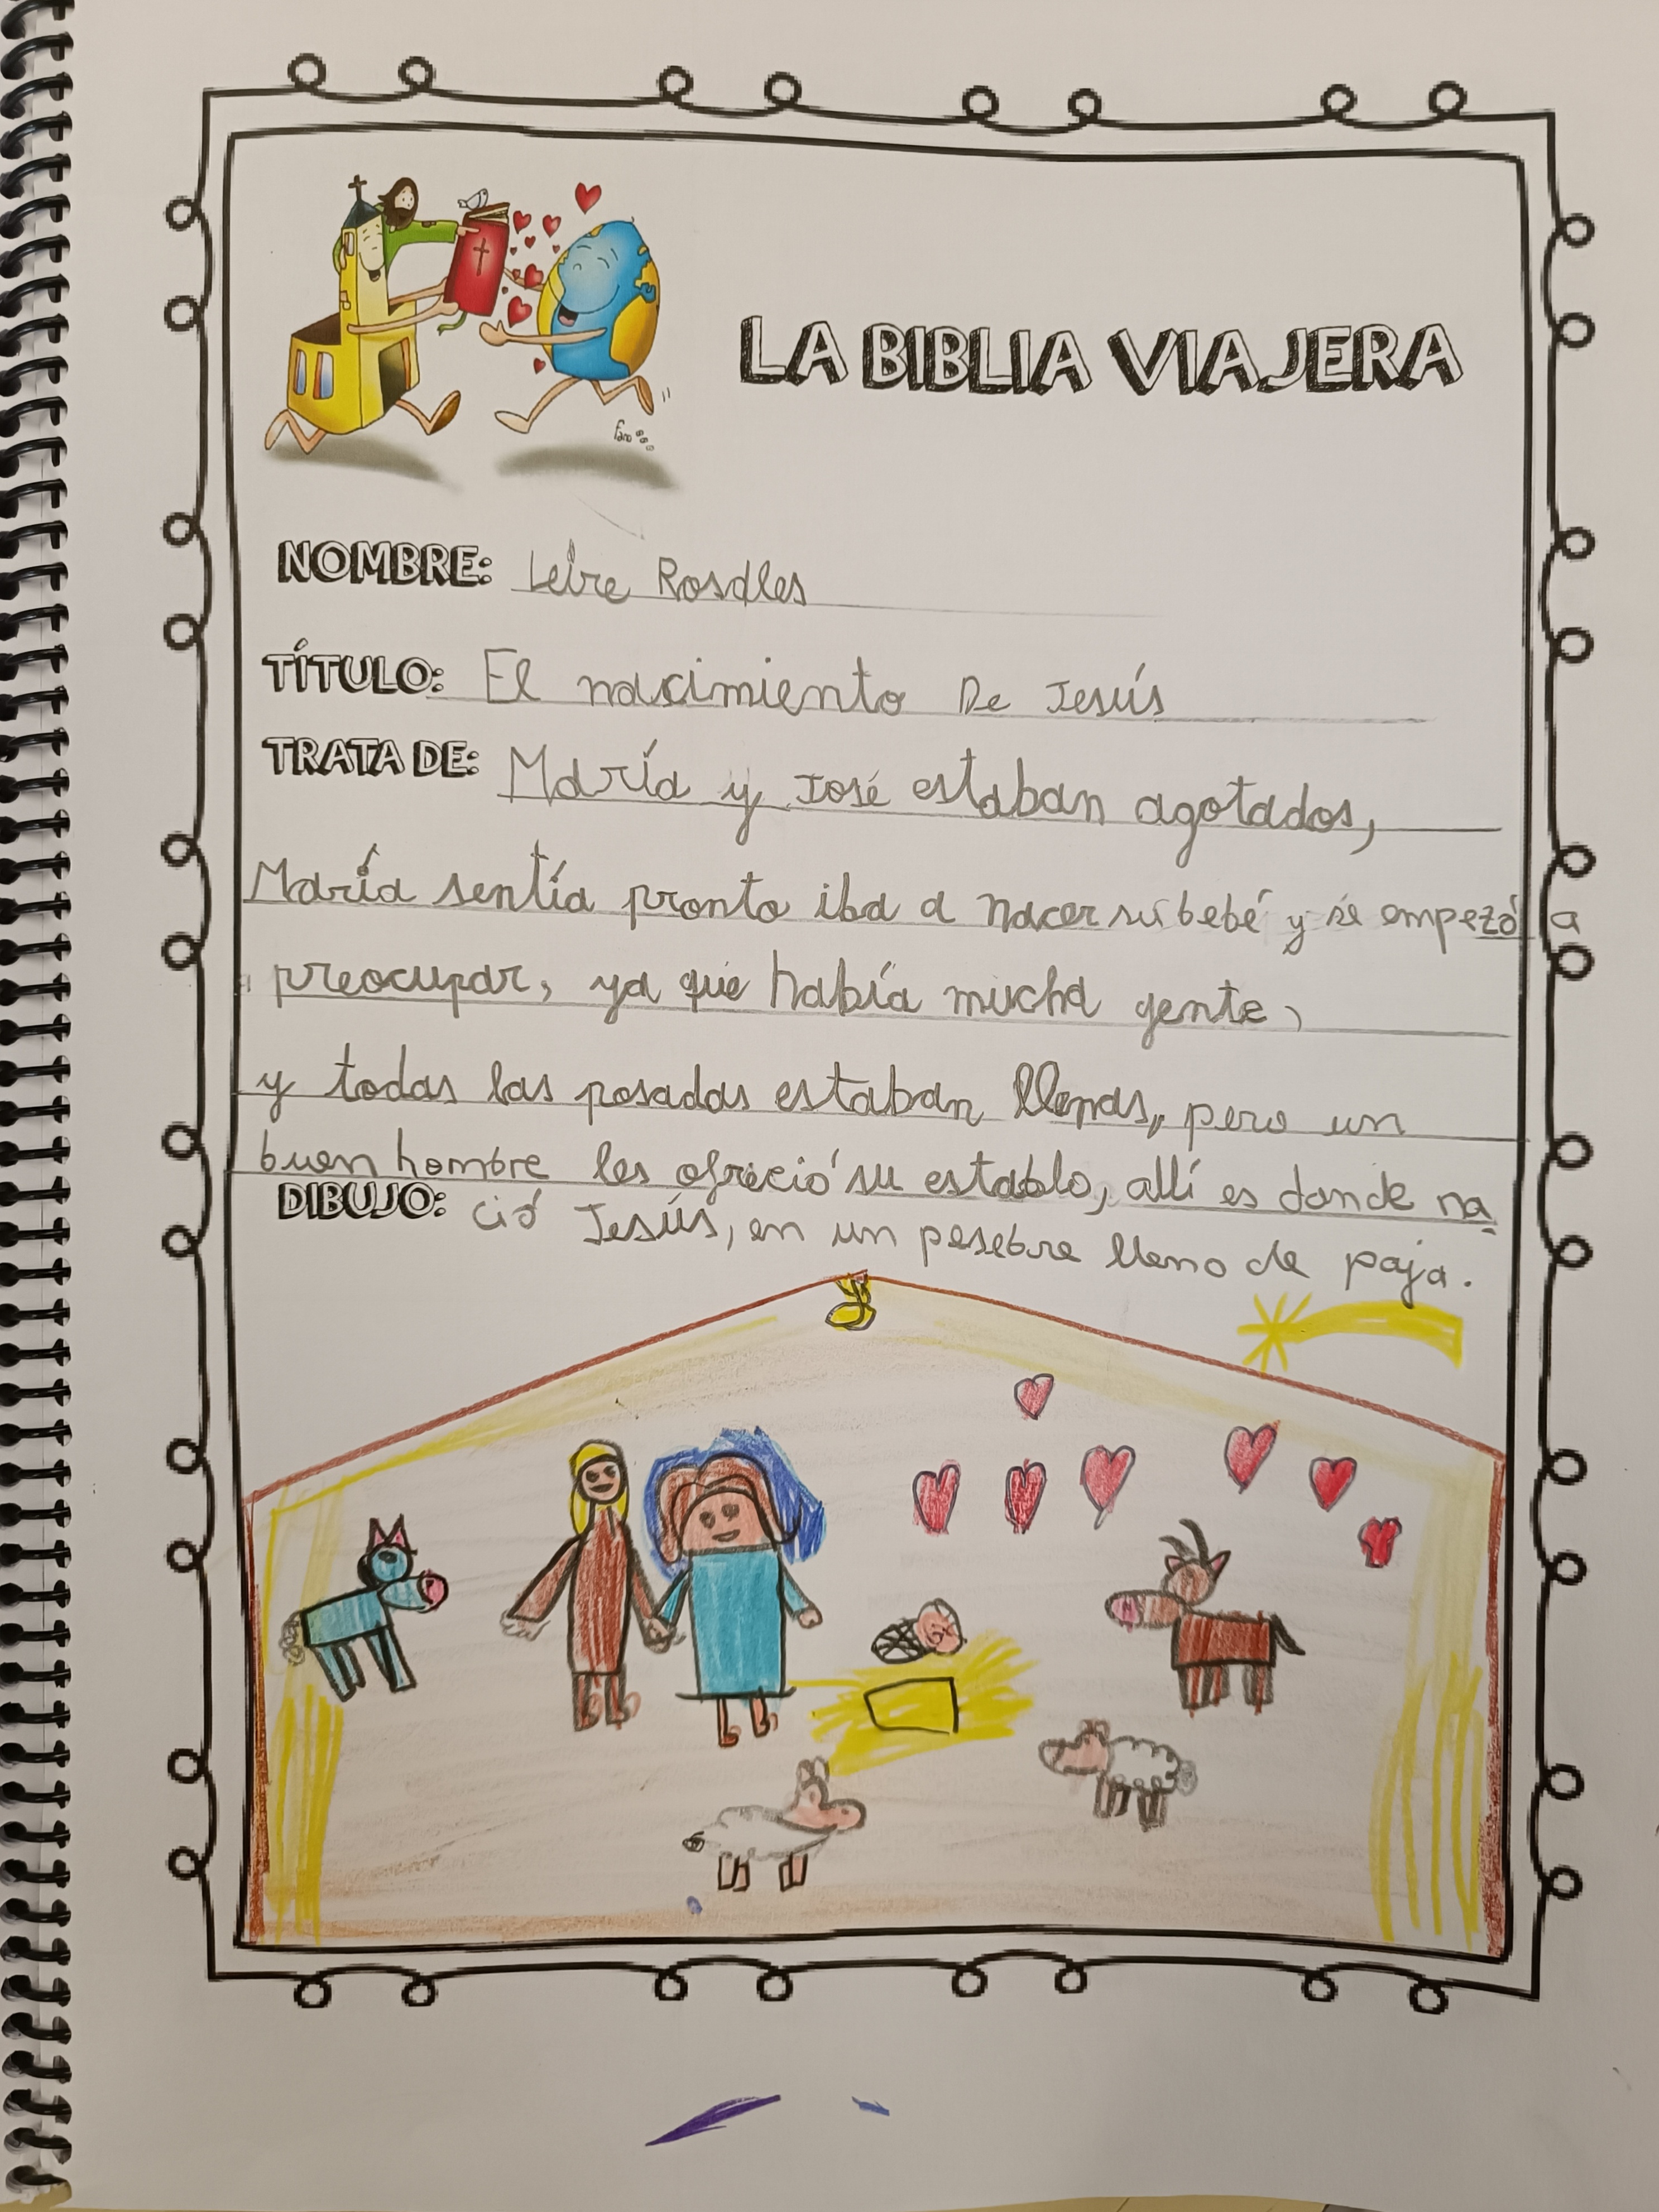 LA BIBLIA VIAJERA
NOMBRE: Leire Rosales
TÍTULO: El nacimiento De Jesús
TRATA DE: María y José estaban agotados,
María sentía pronto iba a nacer su bebé y se empezó a
preocupar, ya que había mucha gente,
y todas las posadas estaban llenas, pero un
buen hombre les ofreció su establo, allí es donde na
DIBUJO: ció Jesús, en un pesebre lleno de paja.